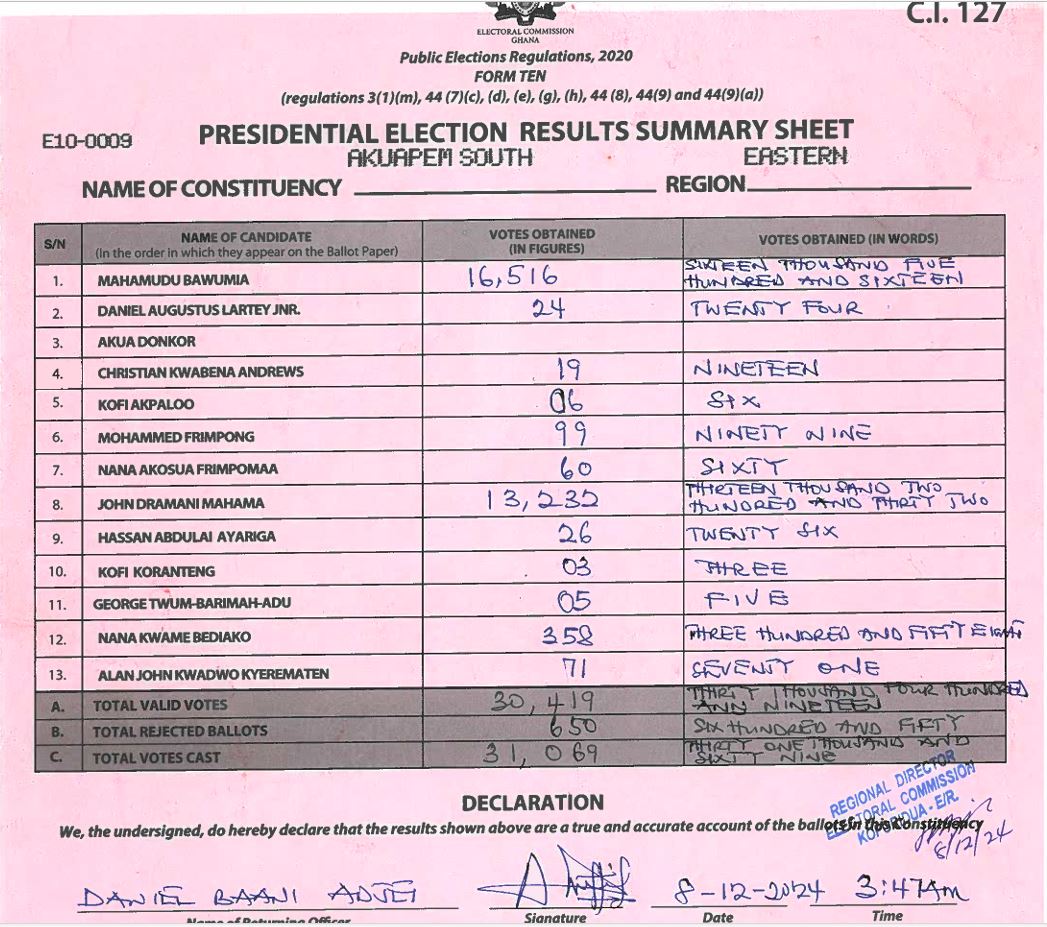 C.I. 127
ELECTORAL COMMISSION
GHANA
Public Elections Regulations, 2020
FORM TEN
(regulations 3(1)(m), 44 (7)(c), (d), (e), (g), (h), 44 (8), 44(9) and 44(9)(a))
E10-0009
PRESIDENTIAL ELECTION RESULTS SUMMARY SHEET
AKUAPEM SOUTH EASTERN
NAME OF CONSTITUENCY REGION
S/N NAME OF CANDIDATE (In the order in which they appear on the Ballot Paper) VOTES OBTAINED (IN FIGURES) VOTES OBTAINED (IN WORDS)
1. MAHAMUDU BAWUMIA 16,516 SIXTEEN THOUSAND FIVE HUNDRED AND SIXTEEN
2. DANIEL AUGUSTUS LARTEY JNR. 24 TWENTY FOUR
3. AKUA DONKOR
4. CHRISTIAN KWABENA ANDREWS 19 NINETEEN
5. KOFI AKPALOO 06 SIX
6. MOHAMMED FRIMPONG 99 NINETY NINE
7. NANA AKOSUA FRIMPOMAA 60 SIXTY
8. JOHN DRAMANI MAHAMA 13,232 THIRTEEN THOUSAND TWO HUNDRED AND THIRTY TWO
9. HASSAN ABDULAI AYARIGA 26 TWENTY SIX
10. KOFI KORANTENG 03 THREE
11. GEORGE TWUM-BARIMAH-ADU 05 FIVE
12. NANA KWAME BEDIAKO 358 THREE HUNDRED AND FIFTY EIGHT
13. ALAN JOHN KWADWO KYEREMATEN 71 SEVENTY ONE
A. TOTAL VALID VOTES 30,419 THIRTY THOUSAND, FOUR HUNDRED ANN NINETEEN
B. TOTAL REJECTED BALLOTS 650 SIX HUNDRED AND FIFTY
C. TOTAL VOTES CAST 31,069 THIRTY ONE THOUSAND AND SIXTY NINE
REGIONAL DIRECTOR
ELECTORAL COMMISSION
KOFORIDUA - E/R.
8/12/24
DECLARATION
We, the undersigned, do hereby declare that the results shown above are a true and accurate account of the ballots in this Constituency
DANIEL BAANI ADJEI 8-12-2024 3:47Am
Name of Returning Officer Signature Date Time